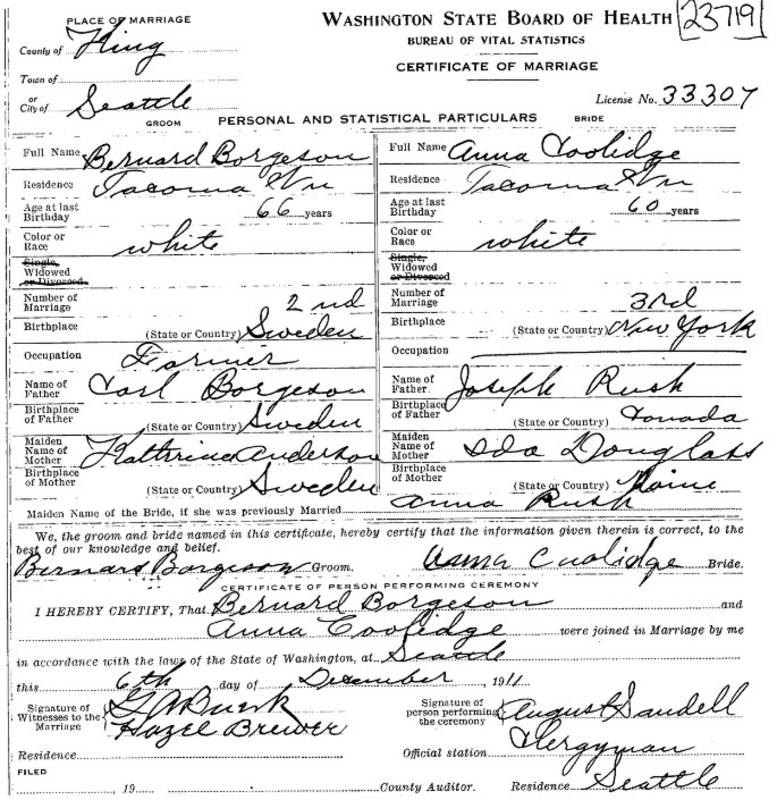 PLACE OF MARRIAGE
WASHINGTON STATE BOARD OF HEALTH 23719
BUREAU OF VITAL STATISTICS
CERTIFICATE OF MARRIAGE
County of King
Town of
or
City of Seattle
License No. 33307
GROOM PERSONAL AND STATISTICAL PARTICULARS BRIDE
Full Name Bernard Borgeson Full Name Anna Coolidge
Residence Tacoma Wn Residence Tacoma Wn
Age at last Birthday 66 years Age at last Birthday 60 years
Color or Race white Color or Race white
Single, Widowed or Divorced Single, Widowed or Divorced
Number of Marriage 2nd Number of Marriage 3rd
Birthplace (State or Country) Sweden Birthplace (State or Country) New York
Occupation Farmer Occupation
Name of Father Carl Borgeson Name of Father Joseph Rush
Birthplace of Father (State or Country) Sweden Birthplace of Father (State or Country) Canada
Maiden Name of Mother Kathrine Anderson Maiden Name of Mother Ida Douglass
Birthplace of Mother (State or Country) Sweden Birthplace of Mother (State or Country) Maine
Maiden Name of the Bride, if she was previously Married Anna Rush
We, the groom and bride named in this certificate, hereby certify that the information given therein is correct, to the
best of our knowledge and belief.
Bernard Borgeson Groom. Anna Coolidge Bride.
CERTIFICATE OF PERSON PERFORMING CEREMONY
I HEREBY CERTIFY, That Bernard Borgeson and
Anna Coolidge were joined in Marriage by me
in accordance with the laws of the State of Washington, at Seattle
this 6th day of December, 1911
Signature of Witnesses to the Marriage Hazel Brewer
Signature of person performing the ceremony August Sandell
Official station Clergyman
Residence
FILED
19 County Auditor. Residence Seattle